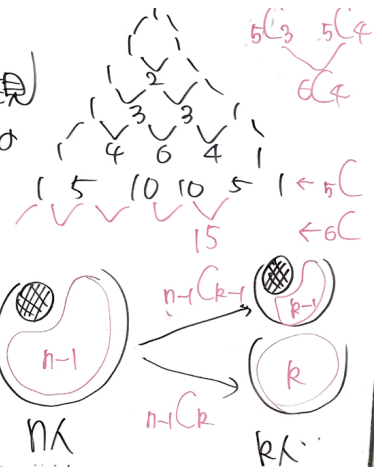 1
1 1
1 2 1
1 3 3 1
1 4 6 4 1
1 5 10 10 5 1 ← 5C
15 ← 6C
5C3 5C4
6C4
n-1
n-1Ck-1
k-1
n-1Ck
k
n人
k人‥